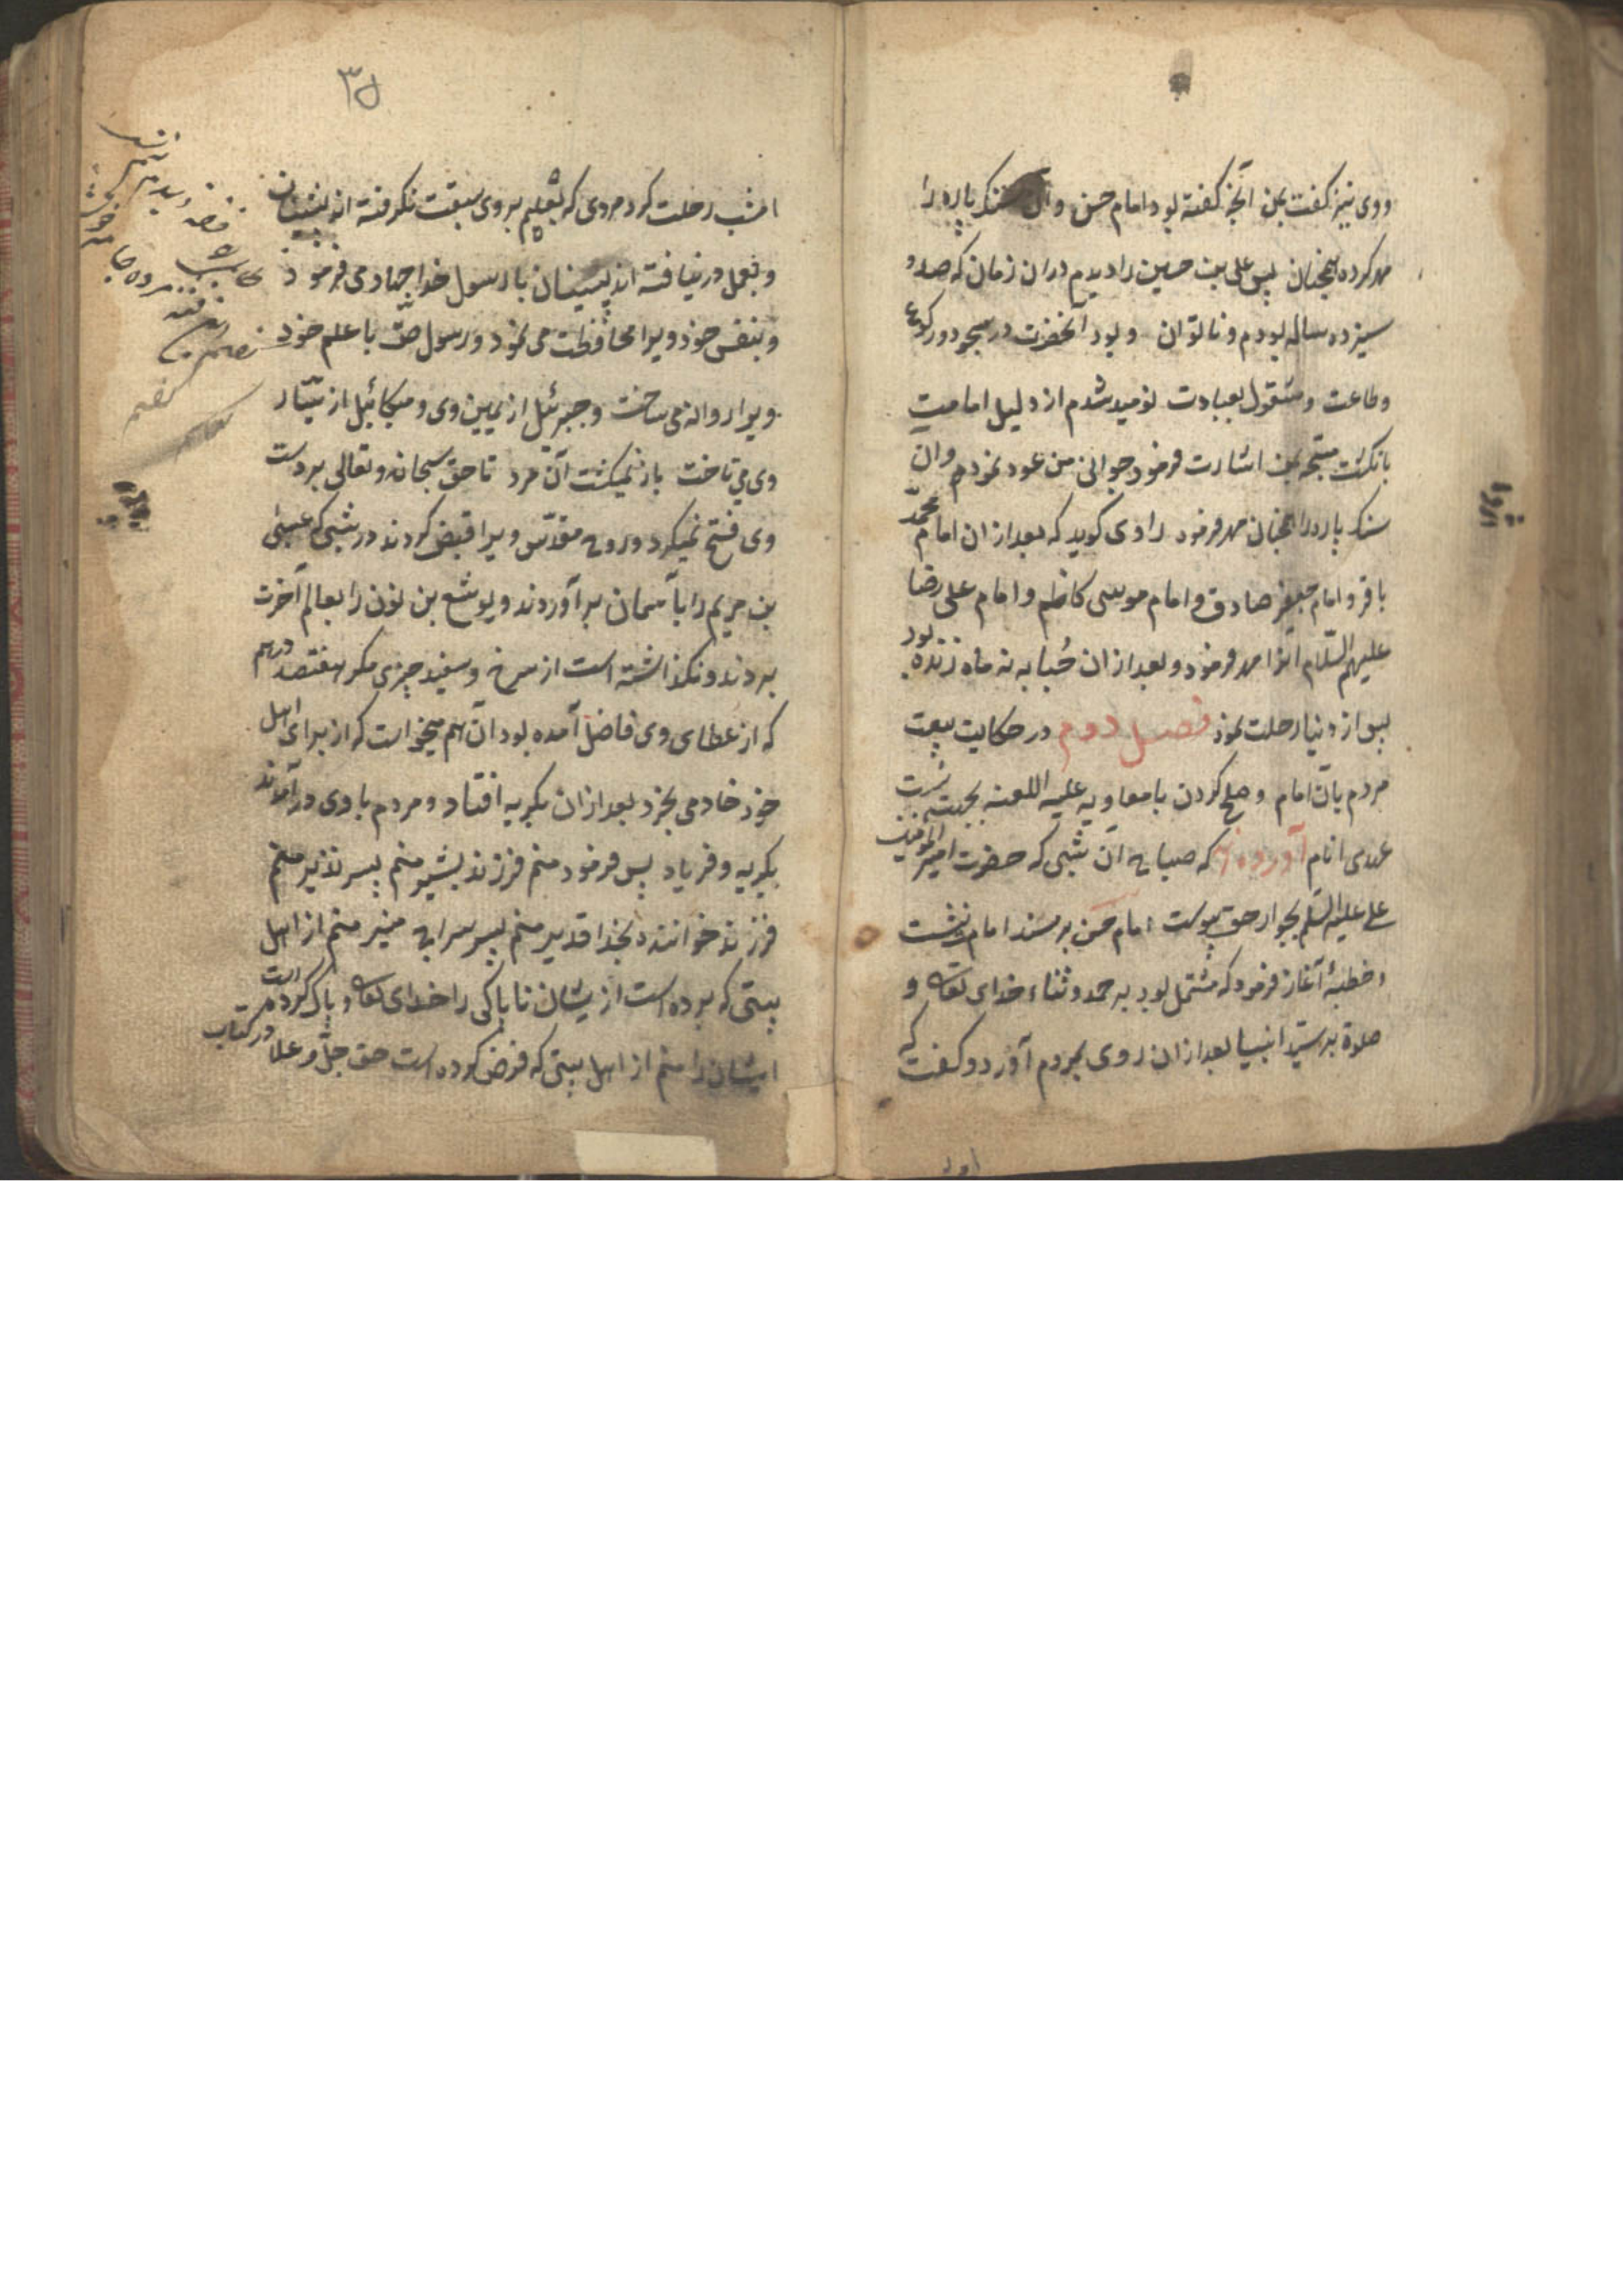 ووی نیز کفت بمن آنچه کفته بود امام حسن وآن سنک پاره را
مهر کرده همچنان پس علی بن حسین را دیدم در ان زمان که صد و
سیزده ساله بودم و ناتوان و بود آنحضرت در سجود و رکوع
وطاعت ومشغول بعبادت نومید شدم از دلیل امامت
بانکشت مسبحه بمن اشارت فرمود جوانی من عود نمود وان
سنک پاره را همچنان مهر فرمود راوی کوید که بعد از ان امام محمّد
باقر و امام جعفر صادق و امام موسی کاظم و امام علی رضا
علیهم السّلام انرا مهر فرمود و بعد از ان حُبابه نه ماه زنده بود
پس از دنیا رحلت نمود فصل دوم در حکایت بیعت
مردم بآن امام و صلح کردن با معاویه علیه اللعنه بجهت
عدی انام آورده که صباح آن شبی که حضرت امیر المومنین
علی علیه السّلم بجوار حق پیوست امام حسن بر مسند امام نشست
وخطبهٔ آغاز فرمود که مشتمل بود به حمد و ثناء خدای تعالی و
صلوة بر سیّد انبیا بعد از ان روی بمردم آورد و کفت که
۳۵
امشب رحلت کرد مردی که بعلم بر وی سبقت نکرفته اند پیشینیان
و بعمل در نیافته اند پسینیان با رسول خدا جهاد می فرمود
و بنفس خود ویرا محافظت می نمود و رسول حقّ با علم خود
ویرا روانه می ساخت و جبرئیل از یمین وی و میکائیل از یسار
وی می تاخت باز نمیکشت آن مرد تا حق سبحانه و تعالی بر دست
وی فتح نمیکرد و روح مقدّس ویرا قبض کردند در شبی که عیسی
بن مریم را بآسمان بر آوردند و یوشع بن نون را بعالم آخرت
بردند و نکذاشته است از سرخ و سفید چیزی مکر هفتصد درهم
که از عطای وی فاضل آمده بود آن هم میخواست که از برای اهل
خود خادمی بخرد بعد از ان بکریه افتاد و مردم با وی در آمدند
بکریه و فریاد پس فرمود منم فرزند بشیر منم پسر نذیر منم
فرزند خواننده بخدا قدیر منم پسر سراج منیر منم از اهل
بیتی که برده است از یشان ناپاکی را خدای تعالی و پاک کرده است
ایشان را منم از اهل بیتی که فرض کرده است حق جلّ و علا در کتاب